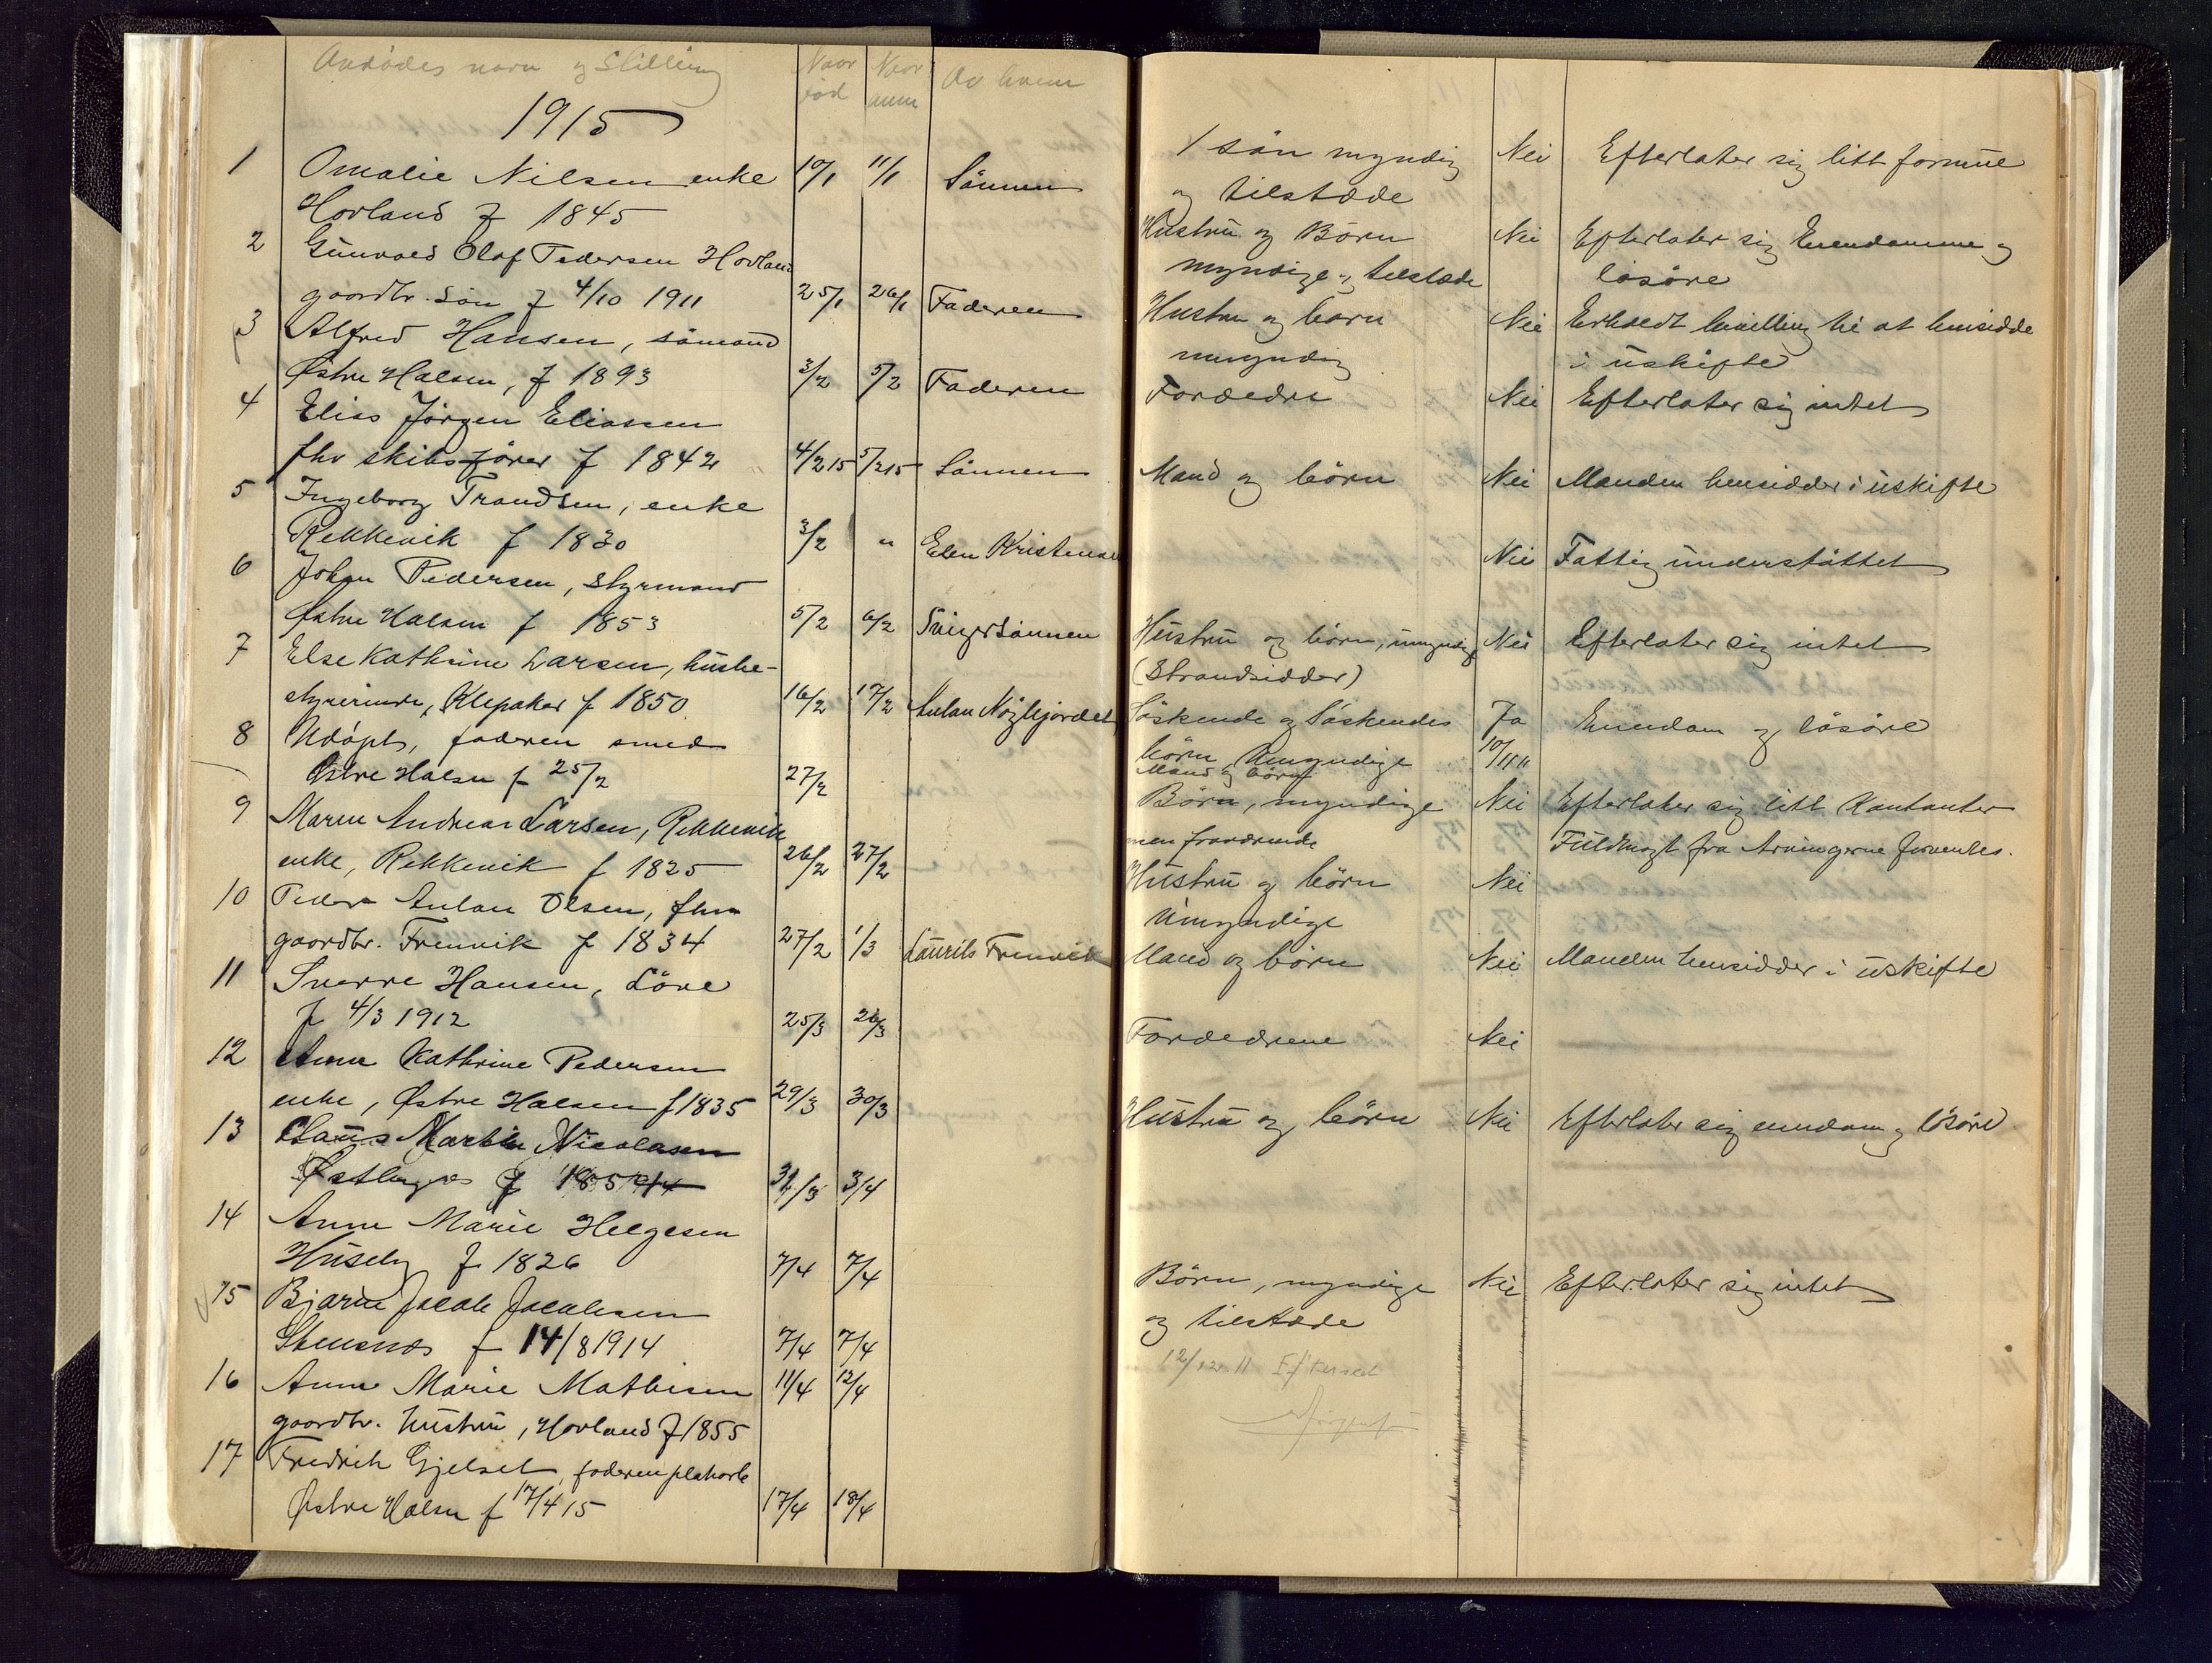 Avdødes navn og Stilling Naar død Naar anm Av hvem
1915
1 Omalie Nilsen enke 10/1 11/1 Sönnen
Hovland f 1845
2 Gunvald Olaf Pedersen Hovland
gaardbr. Sön f 4/10 1911 25/1 26/1 Faderen
3 Alfred Hansen, sömand
Østre Halsen, f 1893 3/2 5/2 Faderen
4 Elias Jörgen Eliassen
fhv skibsförer f 1842 4/2 15 5/2 15 Sönnen
5 Ingeborg Trandsen, enke
Rekkevik f 1830 3/2 " Elen Kristensen
6 Johan Pedersen, Styrmand
Østre Halsen f 1853 5/2 6/2 Svigersönnen
7 Else Kathrine Larsen, hushe-
styrerinde, Klepaker f 1850 16/2 17/2 Anton Nöglegjordet
8 Udöpt, faderen smed
Østre Halsen f 25/2 27/2
9 Maren Andrea Larsen, Rekkevik
enke, Rekkevik f 1825 26/2 27/2
10 Peder Anton Olsen, fhv
gaardbr. Fremvik f 1834 27/2 1/3 Laurits Fremvik
11 Sverre Hansen, Löve
f 4/3 1912 25/3 26/3
12 Anna Kathrine Pedersen
enke, Østre Halsen f 1835 29/3 30/3
13 Claus Martin Nicolasen
f 3/4
14 Anne Marie Helgesen
Huseby f 1826 7/4 7/4
15 Bjarne Jacob Jacobsen
Stensnes f 14/8 1914 7/4 7/4
16 Anne Marie Mathisen 11/4 12/4
gaardbr. Hustru, Hovland f 1855
17 Fredrik Gjelset, faderen
Østre Halsen f 17/4 15 17/4 18/4
1 sön myndig Nei Efterlater sig litt formue
og tilstæde
Hustru og Börn Nei Efterlater sig Eiendomme og
myndige og tilstæde lösöre
Hustru og barn Nei Erholdt bevilling til at hensidde
umyndig i uskifte
Forældre Nei Efterlater sig intet
Mand og börn Nei Manden hensidder i uskifte
Nei Fattigunderstöttet
Hustru og börn, umyndige Nei Efterlater sig intet
(Strandsidder)
Söskende og Söskendes Ja Eiendom og lösöre
börn, Umyndige 10/11 11
Mand og börn
Börn, myndige Nei Efterlater sig litt Kontanter
men fraværende Fuldmagt fra Arvingerne forventes.
Hustru og börn Nei
Umyndige
Mand og börn Nei Manden hensidder i uskifte
Forældrene Nei
Hustru og börn Nei Efterlater sig eiendom og lösöre
Börn, myndige Nei Efterlater sig intet
og tilstæde
12/12 11 Eftersed